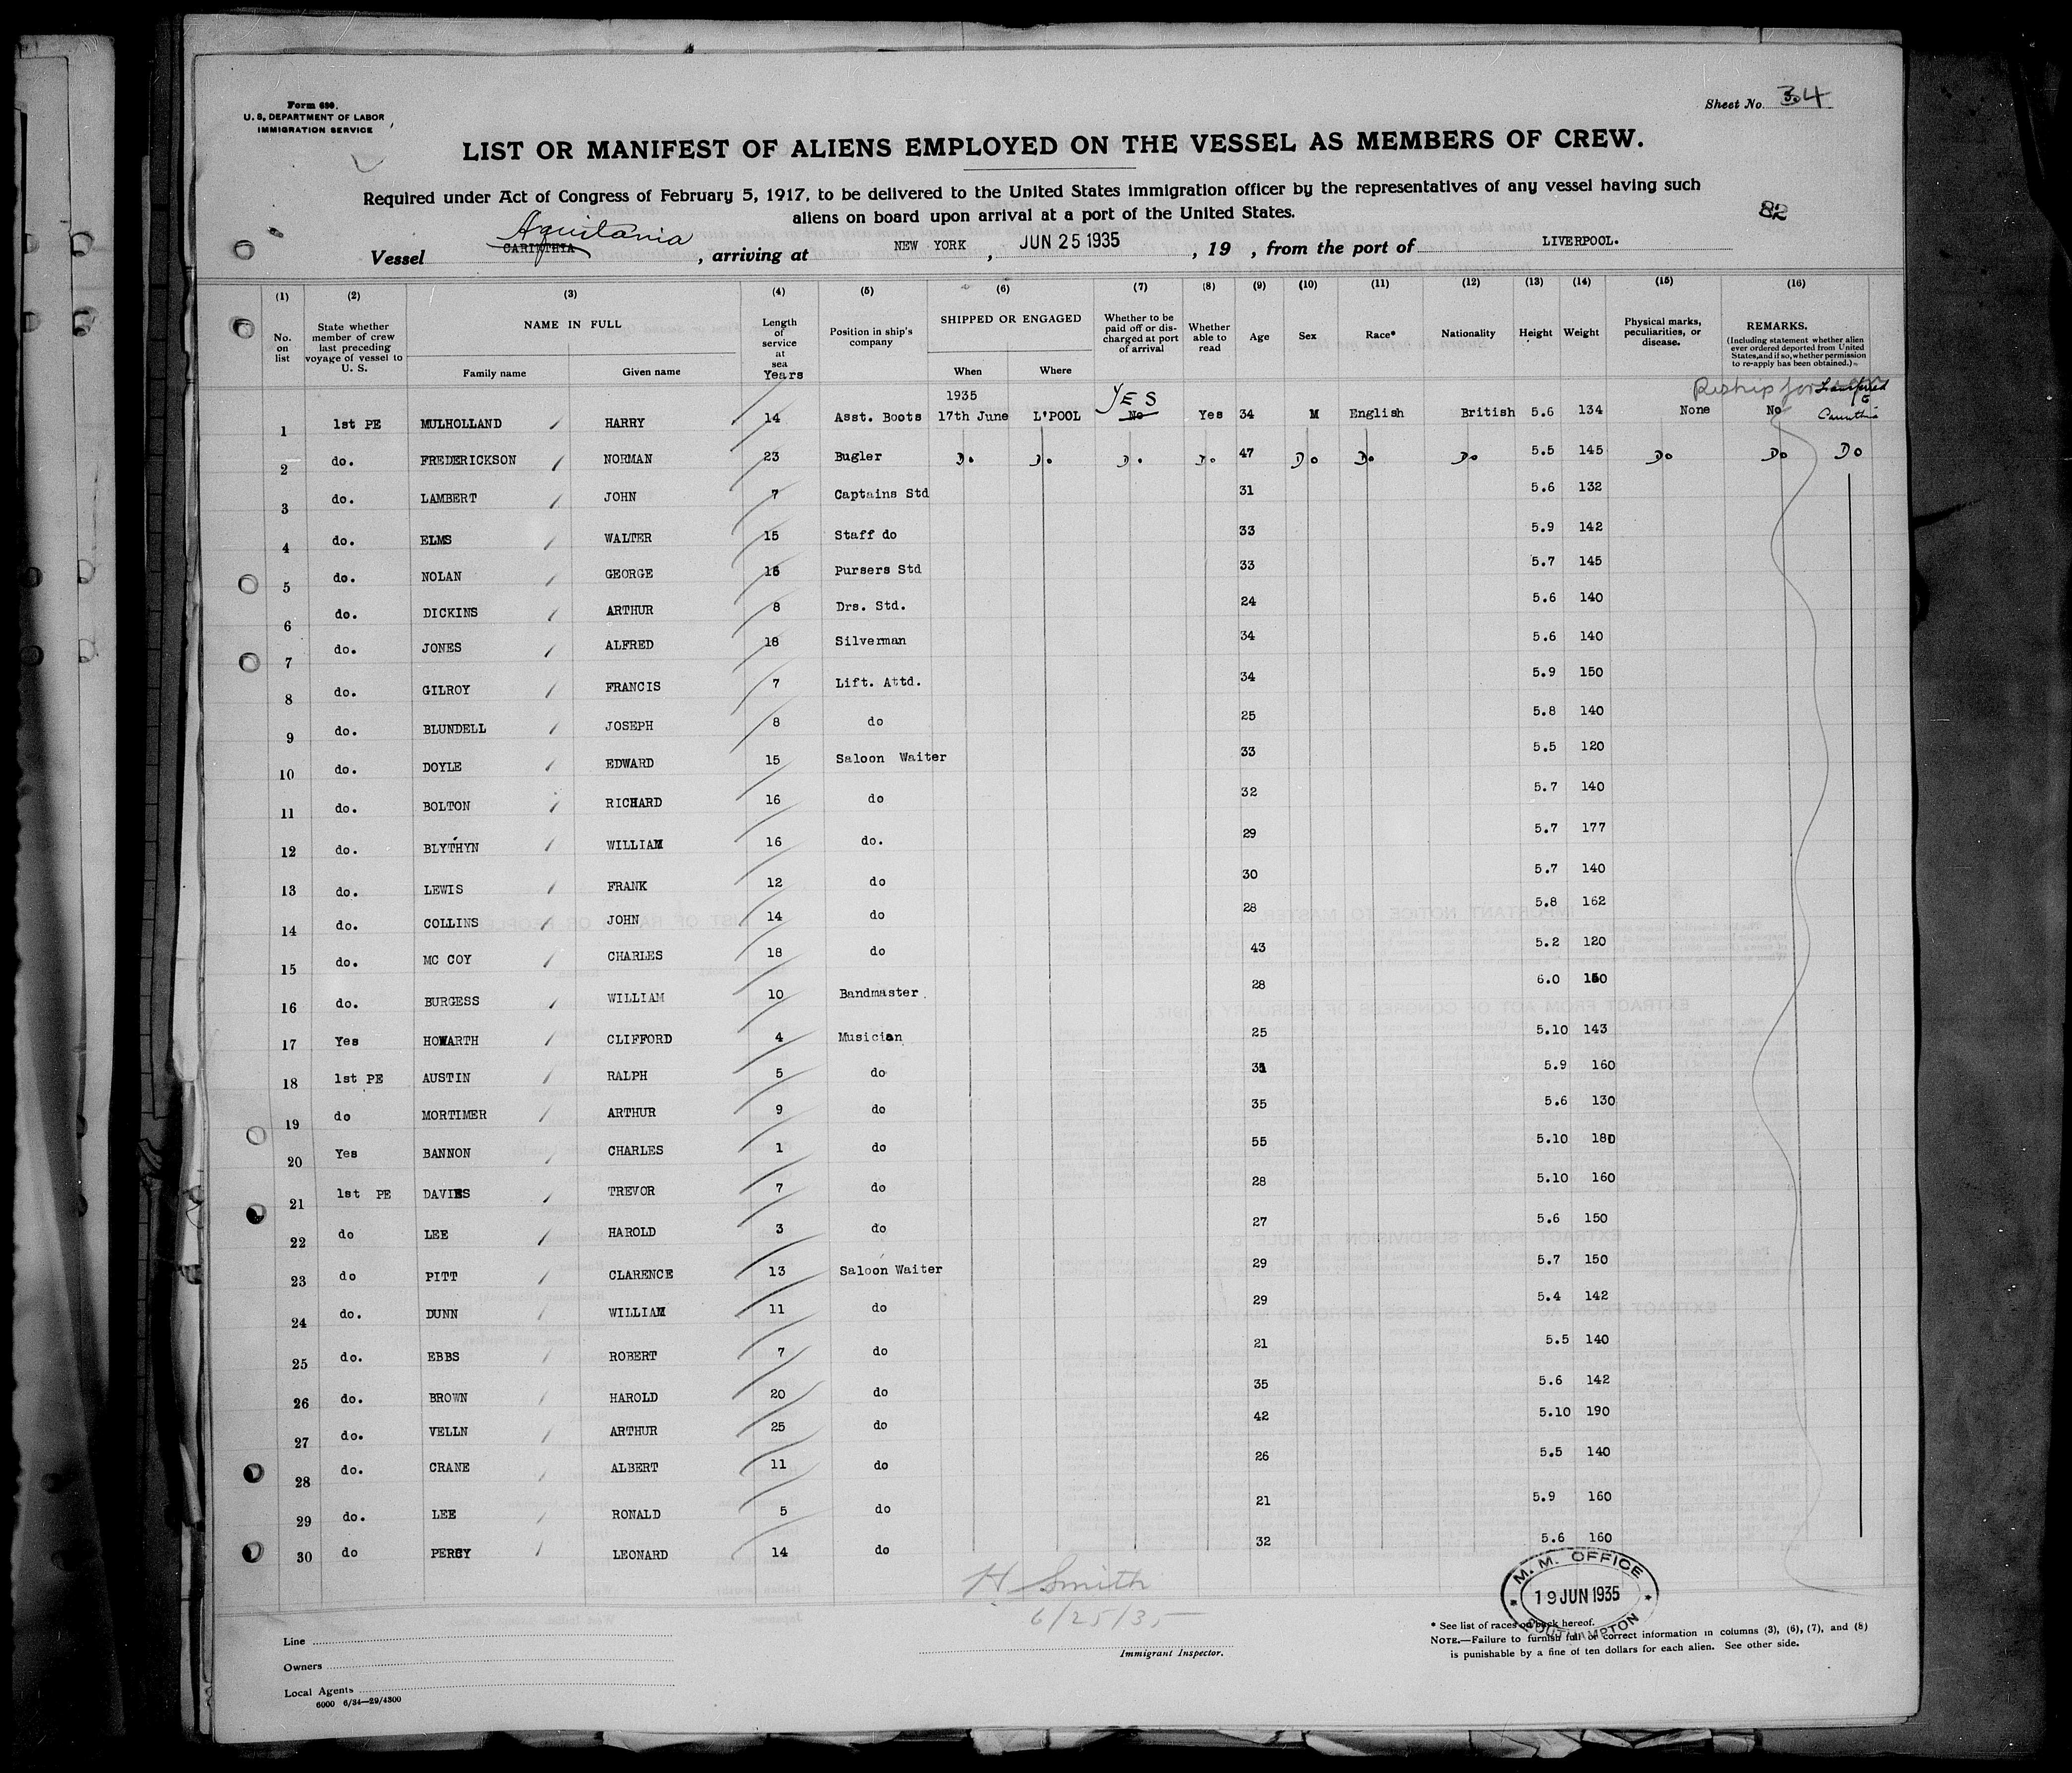 Form 680.
U. S. DEPARTMENT OF LABOR
IMMIGRATION SERVICE
Sheet No. 34
LIST OR MANIFEST OF ALIENS EMPLOYED ON THE VESSEL AS MEMBERS OF CREW.
Required under Act of Congress of February 5, 1917, to be delivered to the United States immigration officer by the representatives of any vessel having such
aliens on board upon arrival at a port of the United States.
82
Aquitania
Vessel CARINTHIA, arriving at NEW YORK, JUN 25 1935, 19 , from the port of LIVERPOOL.
(1) (2) (3) (4) (5) (6) (7) (8) (9) (10) (11) (12) (13) (14) (15) (16)
No. on list
State whether member of crew last preceding voyage of vessel to U. S.
NAME IN FULL
Family name Given name
Length of service at sea
Years
Position in ship's company
SHIPPED OR ENGAGED
When Where
Whether to be paid off or discharged at port of arrival
Whether able to read
Age Sex Race* Nationality Height Weight
Physical marks, peculiarities, or disease.
REMARKS.
(Including statement whether alien ever ordered deported from United States, and if so, whether permission to re-apply has been obtained.)
Reship for
1935
YES
1 1st PE MULHOLLAND HARRY 14 Asst. Boots 17th June L'POOL No Yes 34 M English British 5.6 134 None No
2 do. FREDERICKSON NORMAN 23 Bugler Do. Do. Do. Do. 47 Do Do Do 5.5 145 Do Do Do
3 do. LAMBERT JOHN 7 Captains Std 31 5.6 132
4 do. ELMS WALTER 15 Staff do 33 5.9 142
5 do. NOLAN GEORGE 16 Pursers Std 33 5.7 145
6 do. DICKINS ARTHUR 8 Drs. Std. 24 5.6 140
7 do. JONES ALFRED 18 Silverman 34 5.6 140
8 do. GILROY FRANCIS 7 Lift. Attd. 34 5.9 150
9 do. BLUNDELL JOSEPH 8 do 25 5.8 140
10 do. DOYLE EDWARD 15 Saloon Waiter 33 5.5 120
11 do. BOLTON RICHARD 16 do 32 5.7 140
12 do. BLYTHYN WILLIAM 16 do. 29 5.7 177
13 do. LEWIS FRANK 12 do 30 5.7 140
14 do. COLLINS JOHN 14 do 28 5.8 162
15 do. MC COY CHARLES 18 do 43 5.2 120
16 do. BURGESS WILLIAM 10 Bandmaster. 28 6.0
17 Yes HOWARTH CLIFFORD 4 Musician 25 5.10 143
18 1st PE AUSTIN RALPH 5 do 5.9 160
19 do MORTIMER ARTHUR 9 do 35 5.6 130
20 Yes BANNON CHARLES 1 do 55 5.10 180
21 1st PE DAVIES TREVOR 7 do 28 5.10 160
22 do LEE HAROLD 3 do 27 5.6 150
23 do PITT CLARENCE 13 Saloon Waiter 29 5.7 150
24 do. DUNN WILLIAM 11 do 29 5.4 142
25 do. EBBS ROBERT 7 do 21 5.5 140
26 do. BROWN HAROLD 20 do 35 5.6 142
27 do. VELLN ARTHUR 25 do 42 5.10 190
28 do. CRANE ALBERT 11 do 26 5.5 140
29 do. LEE RONALD 5 do 21 5.9 160
30 do PERCY LEONARD 14 do 32 5.6 160
H Smith
6/25/35
Immigrant Inspector.
M. M. OFFICE
19 JUN 1935
SOUTHAMPTON
Line
Owners
Local Agents
6000 6/34—29/4300
* See list of races on back hereof.
NOTE.—Failure to furnish full or correct information in columns (3), (6), (7), and (8)
is punishable by a fine of ten dollars for each alien. See other side.